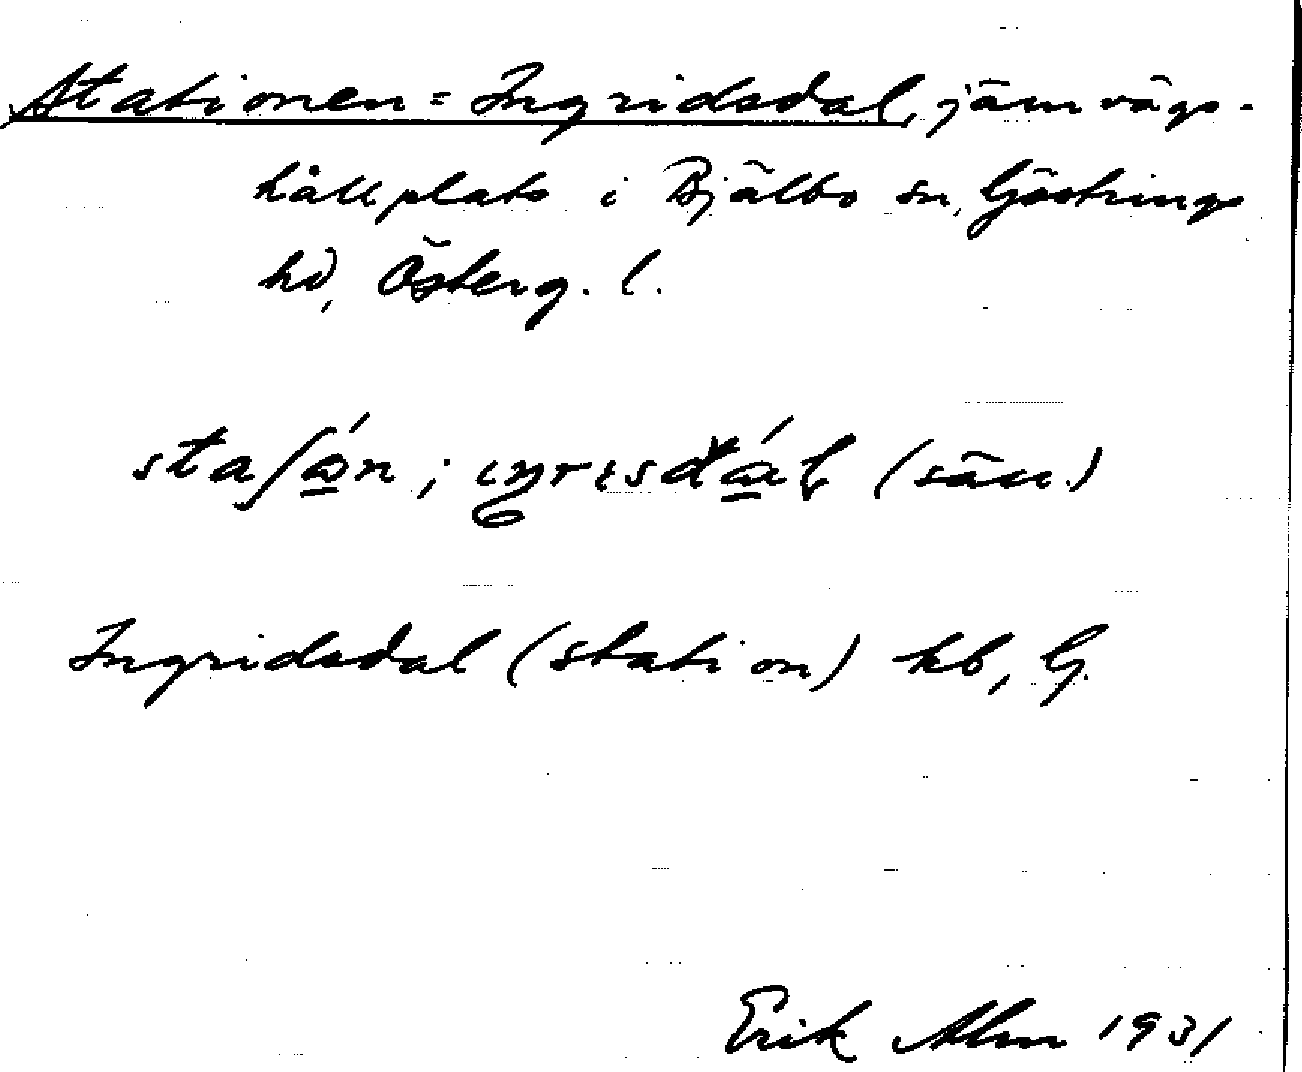 Stationen = Ingridsdal, järnvägs-
hållplats i Bjälbo sn, Göstrings
hd, Österg. l.
staʃó̠n; ıŋrısdá̠l (sän.)
Ingridsdal (station) kb, G.
Erik Alm 1931